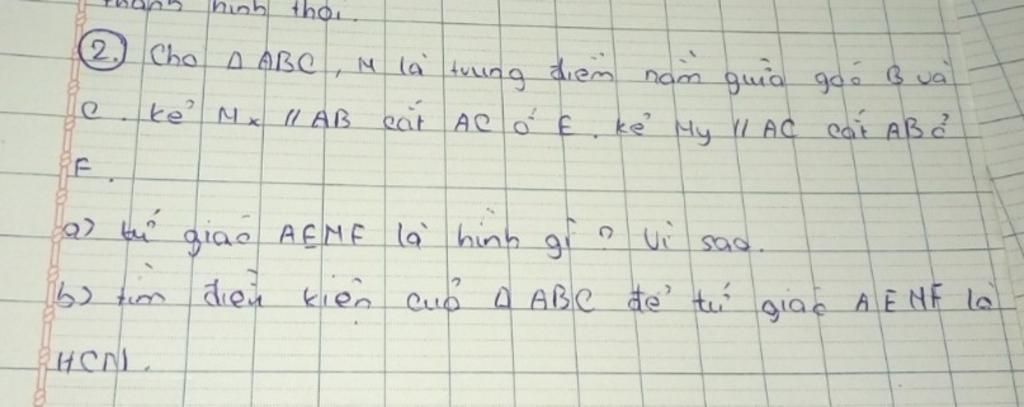 thành hình thoi.
2. Cho Δ ABC, M là trung điểm nằm giữa góc B và
C. kẻ Mx // AB cắt AC ở E. kẻ My // AC cắt AB ở
F.
a) tứ giác AEMF là hình gì ? Vì sao.
b) tìm điều kiện cuả Δ ABC để tứ giác AEMF là
HCN.